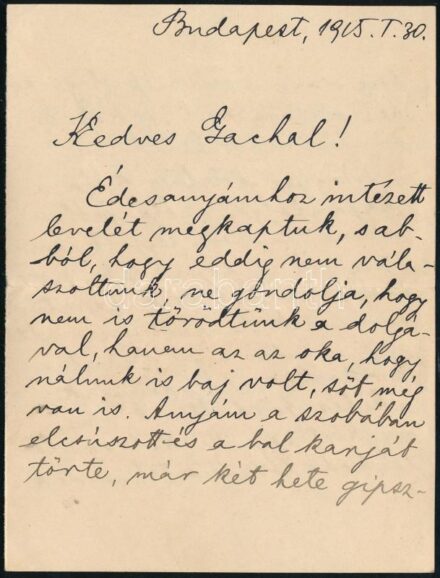 Budapest, 1915. I. 30.
Kedves Gachal!
Édesanyámhoz intézett
levelét megkaptuk, s ab-
ból, hogy eddig nem vála-
szoltunk, ne gondolja, hogy
nem is törődtünk a dolgá-
val, hanem az az oka, hogy
nálunk is baj volt, sőt még
van is. Anyám a szobában
elcsúszott és a bal karját
törte, már két hete gipsz-